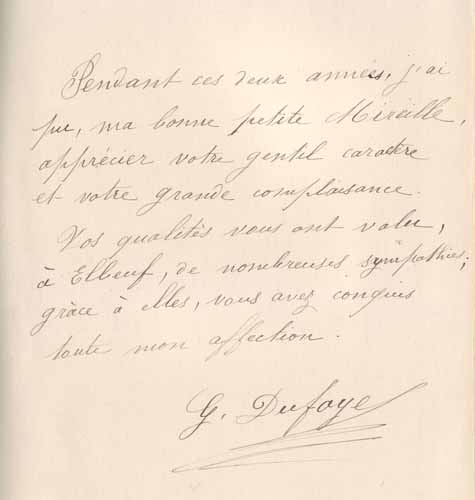 Pendant ces deux années, j'ai
pu, ma bonne petite Mireille,
apprécier votre gentil caractère
et votre grande complaisance.
Vos qualités vous ont valu,
à Elbeuf, de nombreuses sympathies;
grâce à elles, vous avez conquis
toute mon affection.
G. Dufoye